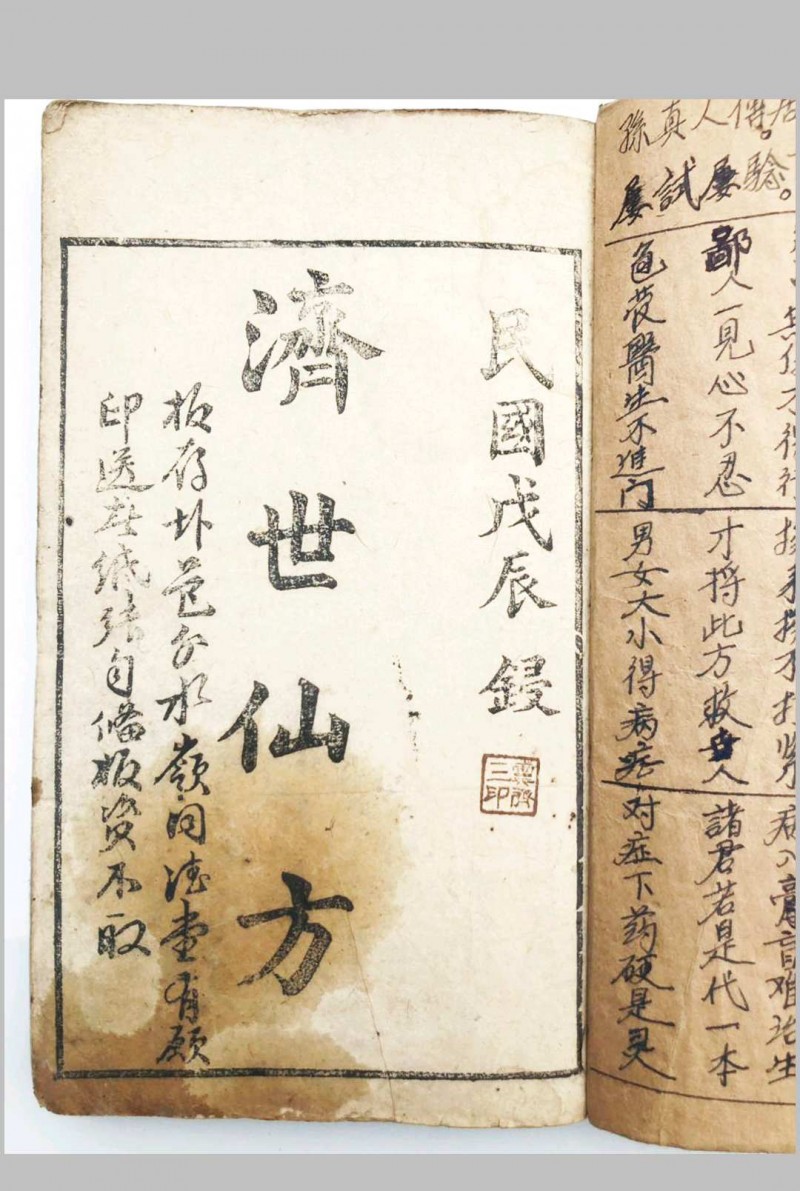 孫真人傳。
屢試屢驗。
病入膏肓難治生
鄙人一見心不忍 才捋此方救世人 諸君若是代一本
醫生不進门 男女大小得病症 对症下药硬是灵
民國戊辰鋟
濟世仙方
板存 分水嶺同德堂有願
印送者紙張自備板資不取